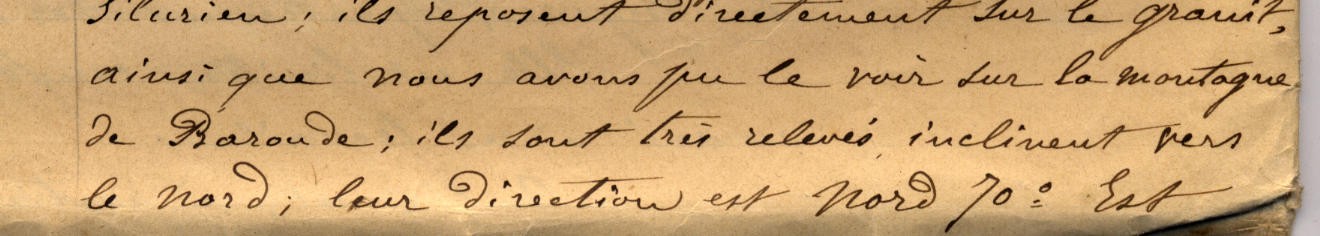 Silurien ; ils reposent directement sur le granit,
ainsi que nous avons pu le voir sur la montagne
de Baroude ; ils sont très relevés, inclinent vers
le nord ; leur direction est Nord 70° Est